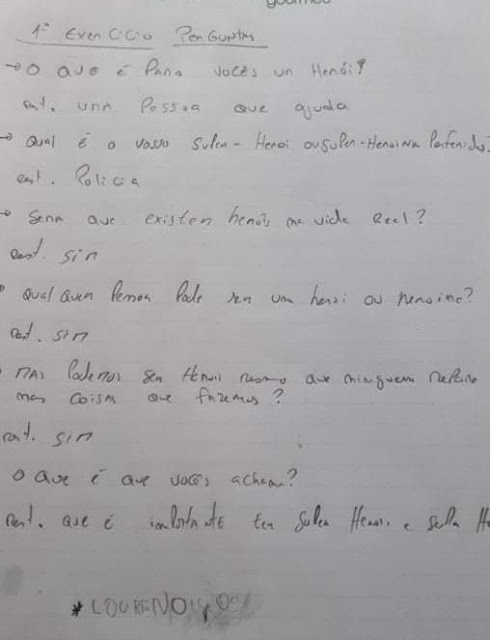 1º Exercício Perguntas
→ O que é para vocês um Herói?
Rest. uma Pessoa que ajuda
→ Qual é o vosso Super-Herói ou Super-Heroína Preferido?
Rest. Policia
→ Sera que existem herois na vida Real?
Rest. sim
Qual quer Pessoa Pode ser um heroi ou heroina?
Rest. sim
Mas Podemos ser Herois mesmo que ninguem repare
nas coisas que fazemos?
Rest. sim
O que é que vocês acham?
Rest. que é importante ter Super Heroi e
* LOURENÇO